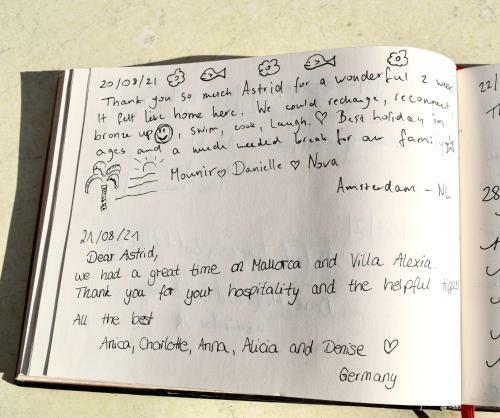 20/08/21
Thank you so much Astrid for a wonderful 2 week
It felt like home here. We could recharge, reconnect
bronze up, swim, cook, laugh. ♡ Best holiday in
ages and a much needed break for our family
Mounir ♡ Danielle ♡ Nova
Amsterdam - NL
21/08/21
Dear Astrid,
we had a great time on Mallorca and Villa Alexia.
Thank you for your hospitality and the helpful
All the best
Anica, Charlotte, Anna, Alicia and Denise ♡
Germany
22/
28